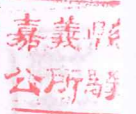 嘉義縣
公所騎